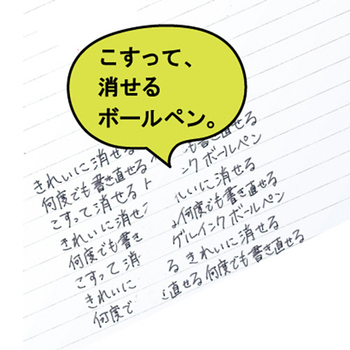 こすって、
消せる
ボールペン。
きれいに消せる
何度でも書き直せる
こすって消せる
きれいに消せ
何度でも書き
こすって消
きれいに
何度で
も書き直せる
ンクボールペン
いに消せる
何度でも書き直せる
ゲルインクボールペン
る きれいに消せる
直せる何度でも書き直せる